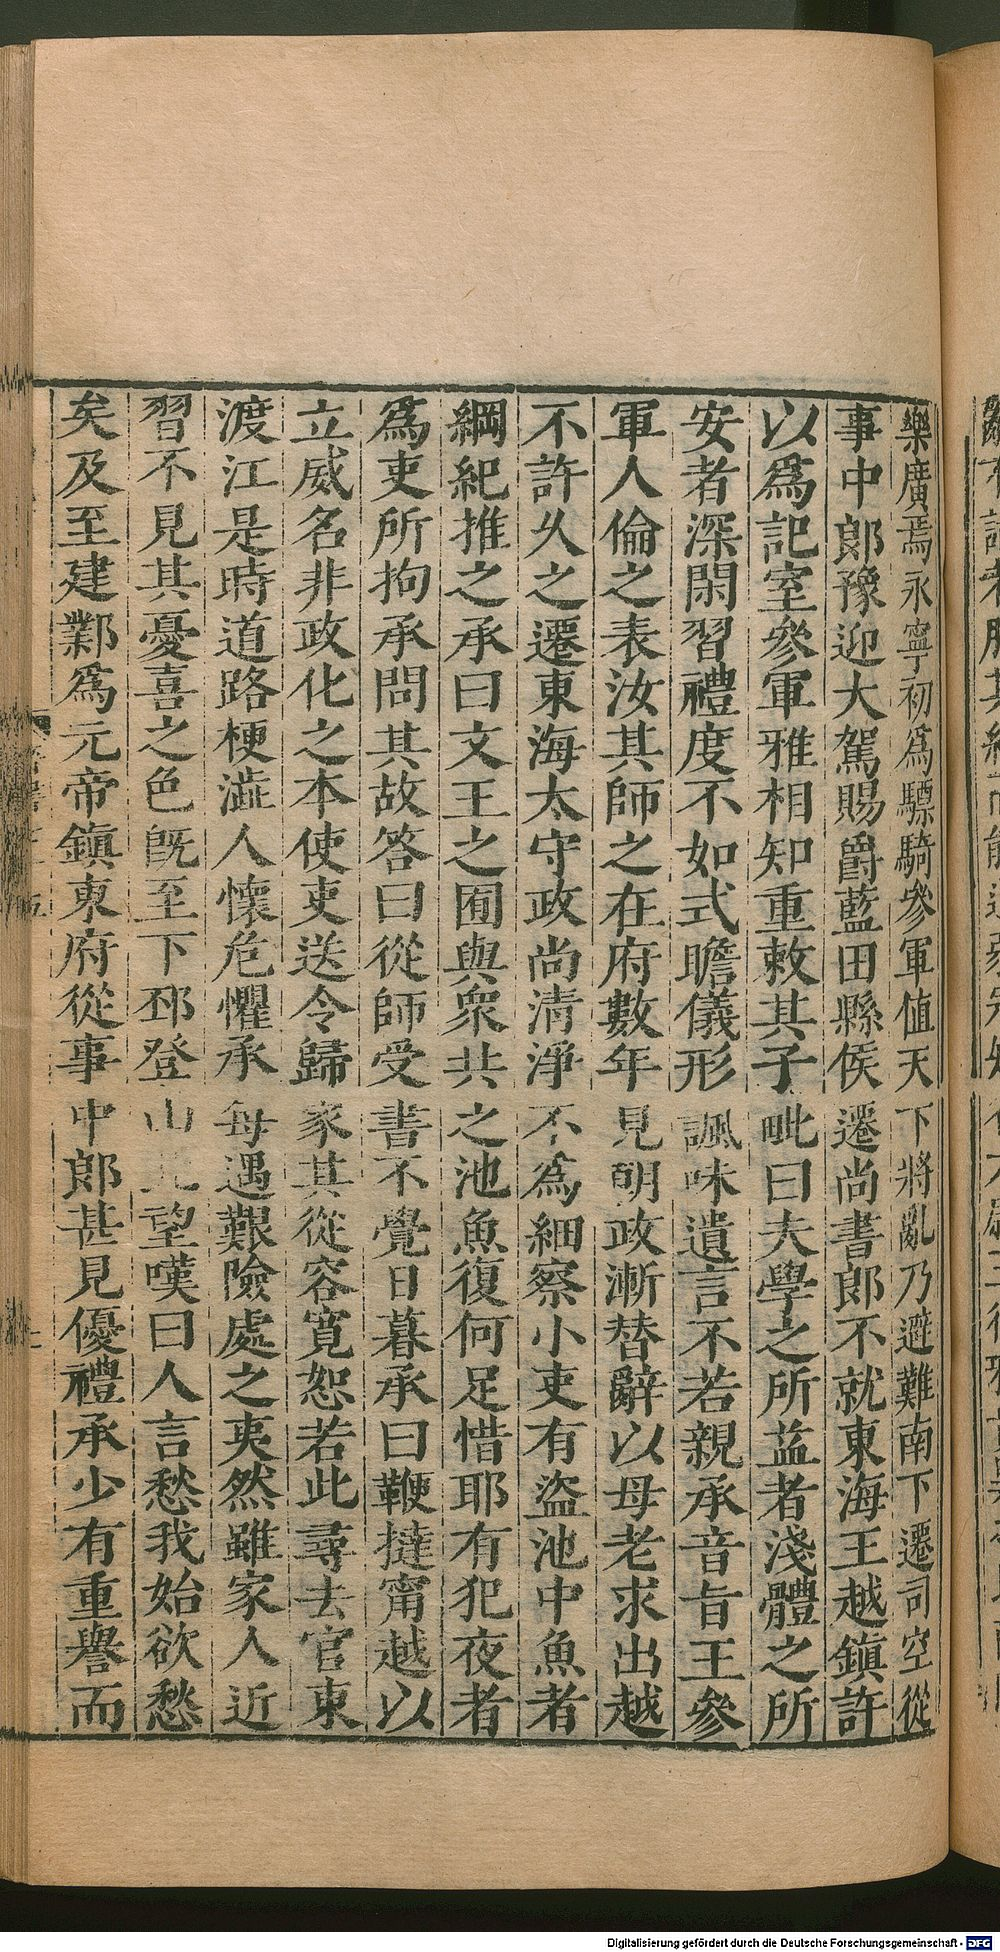 樂廣焉永寧初爲驃騎參軍值天下將亂乃避難南下遷司空從
事中郎豫迎大駕賜爵藍田縣侯遷尚書郎不就東海王越鎮許
以爲記室參軍雅相知重敕其子毗曰夫學之所益者淺體之所
安者深閑習禮度不如式瞻儀形諷味遺言不若親承音旨王參
軍人倫之表汝其師之在府數年見朝政漸替辭以母老求出越
不許久之遷東海太守政尚清淨不爲細察小吏有盜池中魚者
綱紀推之承曰文王之囿與衆共之池魚復何足惜耶有犯夜者
爲吏所拘承問其故答曰從師受書不覺日暮承曰鞭撻甯越以
立威名非政化之本使吏送令歸家其從容寬恕若此尋去官東
渡江是時道路梗澁人懷危懼承每遇艱險處之夷然雖家人近
習不見其憂喜之色旣至下邳登山北望嘆曰人言愁我始欲愁
矣及至建鄴爲元帝鎮東府從事中郎甚見優禮承少有重譽而
Digitalisierung gefördert durch die Deutsche Forschungsgemeinschaft - DFG